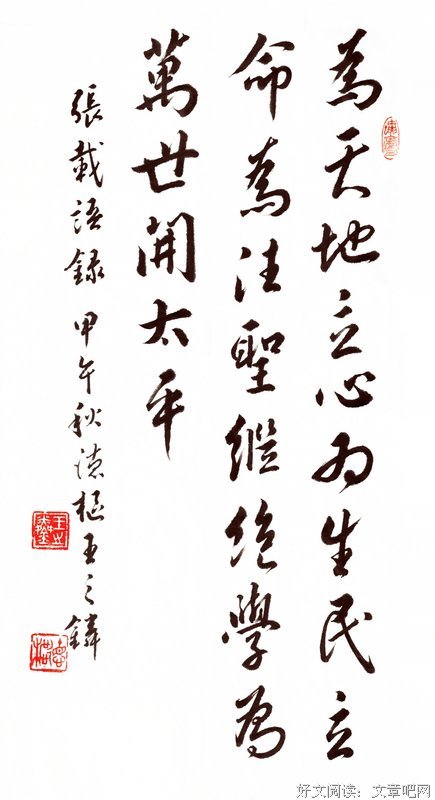 為天地立心为生民立
命為往聖繼絕學為
萬世開太平
張載語錄 甲午秋德樞王之鏻
好文阅读：文章吧网